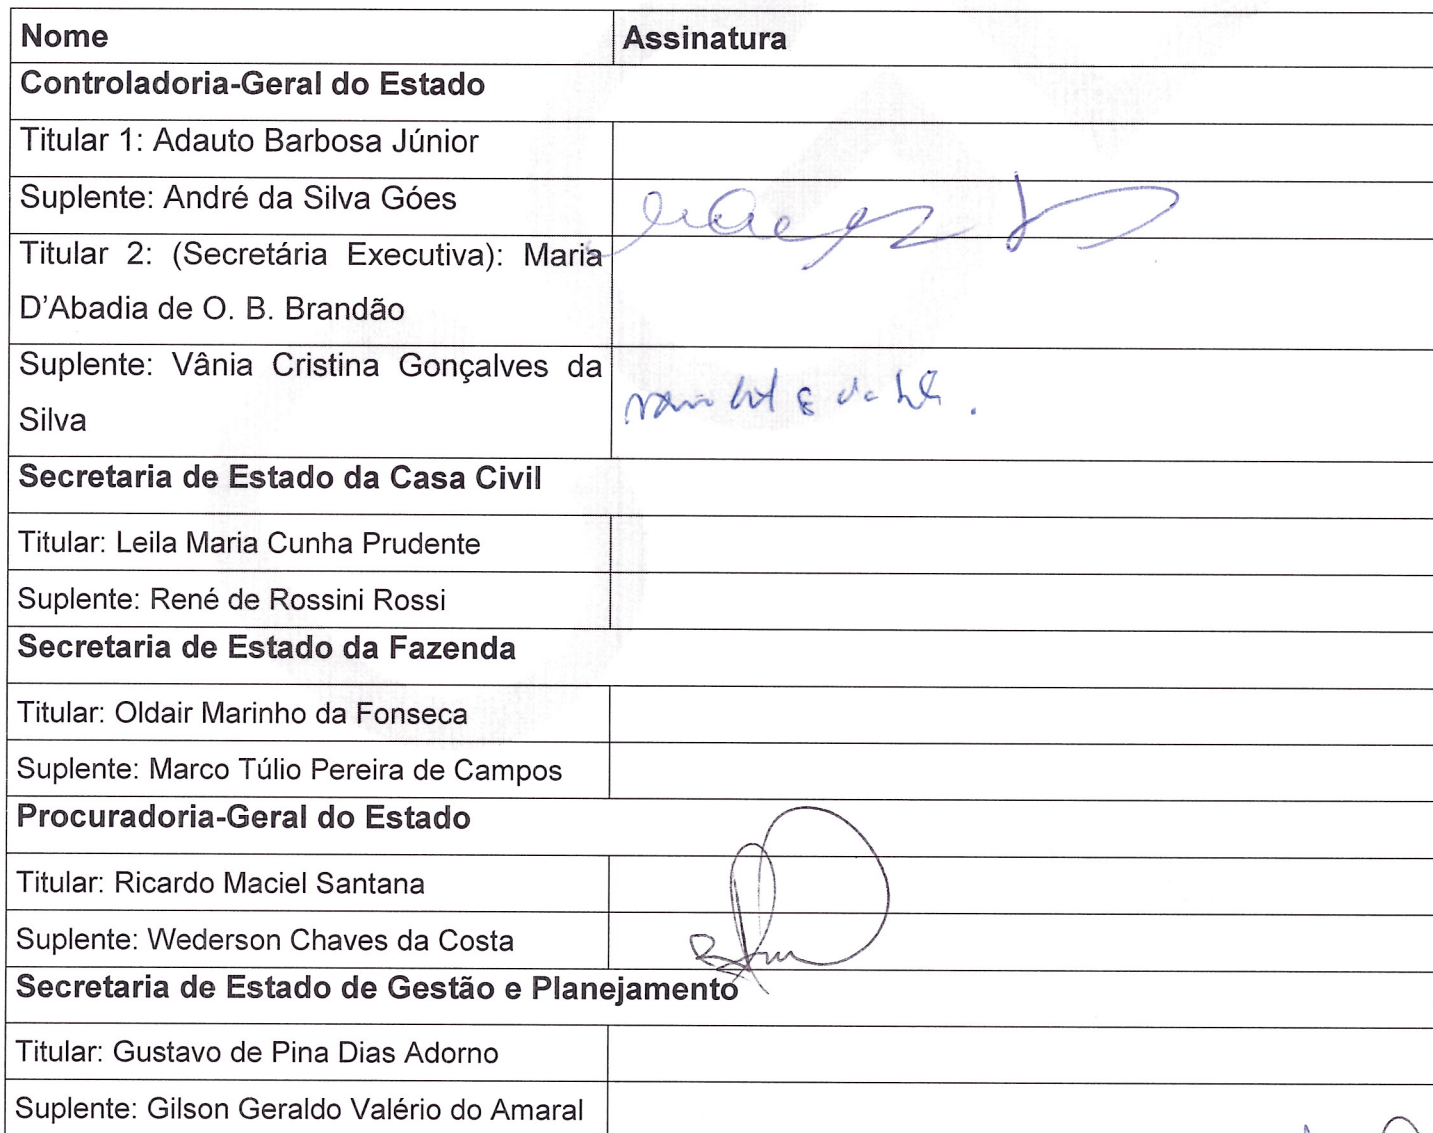 Nome Assinatura
Controladoria-Geral do Estado
Titular 1: Adauto Barbosa Júnior
Suplente: André da Silva Góes
Titular 2: (Secretária Executiva): Maria
D'Abadia de O. B. Brandão
Suplente: Vânia Cristina Gonçalves da
Silva
Secretaria de Estado da Casa Civil
Titular: Leila Maria Cunha Prudente
Suplente: René de Rossini Rossi
Secretaria de Estado da Fazenda
Titular: Oldair Marinho da Fonseca
Suplente: Marco Túlio Pereira de Campos
Procuradoria-Geral do Estado
Titular: Ricardo Maciel Santana
Suplente: Wederson Chaves da Costa
Secretaria de Estado de Gestão e Planejamento
Titular: Gustavo de Pina Dias Adorno
Suplente: Gilson Geraldo Valério do Amaral